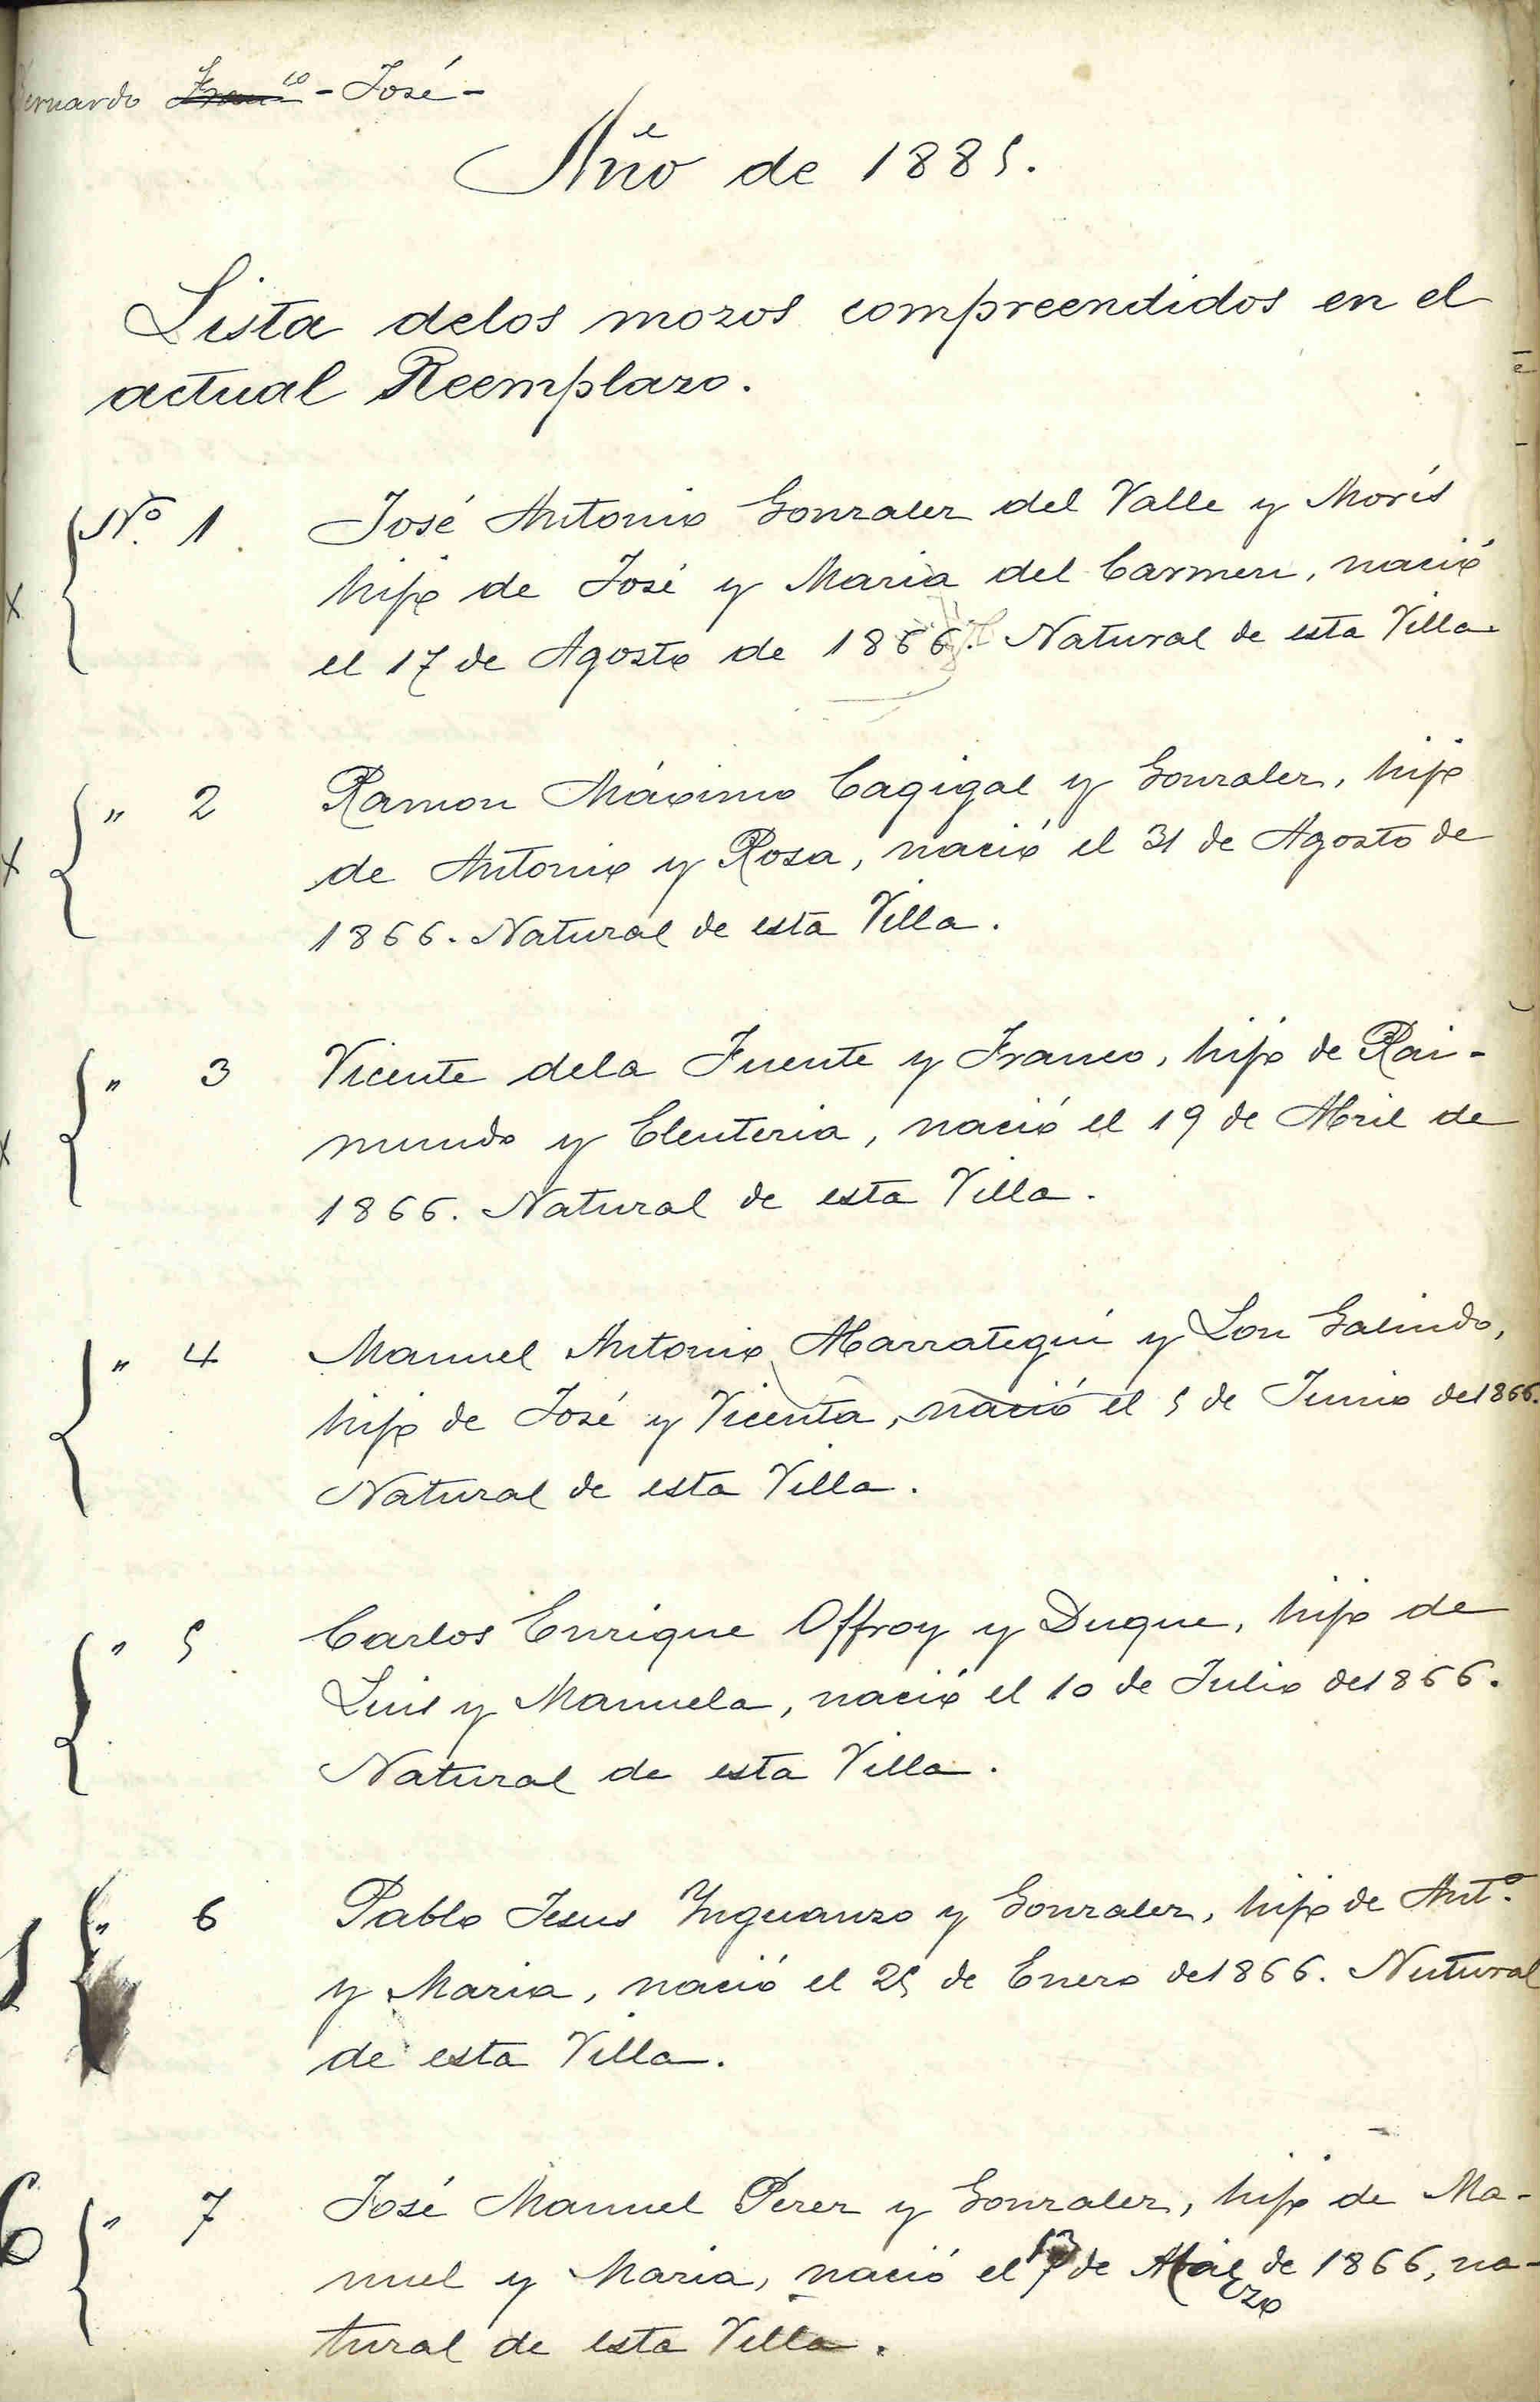 Bernardo Franco - José -
Año de 1885.
Lista delos mozos compreendidos en el
actual Reemplazo.
Nº 1 José Antonio Gonzalez del Valle y Morís
hijo de José y Maria del Carmen, nació
el 17 de Agosto de 1866. Natural de esta Villa.
" 2 Ramon Máximo Cagigal y Gonzalez, hijo
de Antonio y Rosa, nació el 31 de Agosto de
1866. Natural de esta Villa.
" 3 Vicente dela Fuente y Franco, hijo de Rai-
mundo y Eleuteria, nació el 19 de Abril de
1866. Natural de esta Villa.
" 4 Manuel Antonio Abarrategui y Lon Galindo,
hijo de José y Vicenta, nació el 5 de Junio de 1866.
Natural de esta Villa.
" 5 Carlos Enrique Offroy y Duque, hijo de
Luis y Manuela, nació el 10 de Julio de 1866.
Natural de esta Villa.
" 6 Pablo Jesus Ynguanzo y Gonzalez, hijo de Antº
y Maria, nació el 25 de Enero de 1866. Nutural
de esta Villa.
6 " 7 José Manuel Perez y Gonzalez, hijo de Ma-
nuel y Maria, nació el 13 de Marzo de 1866, na-
tural de esta Villa.